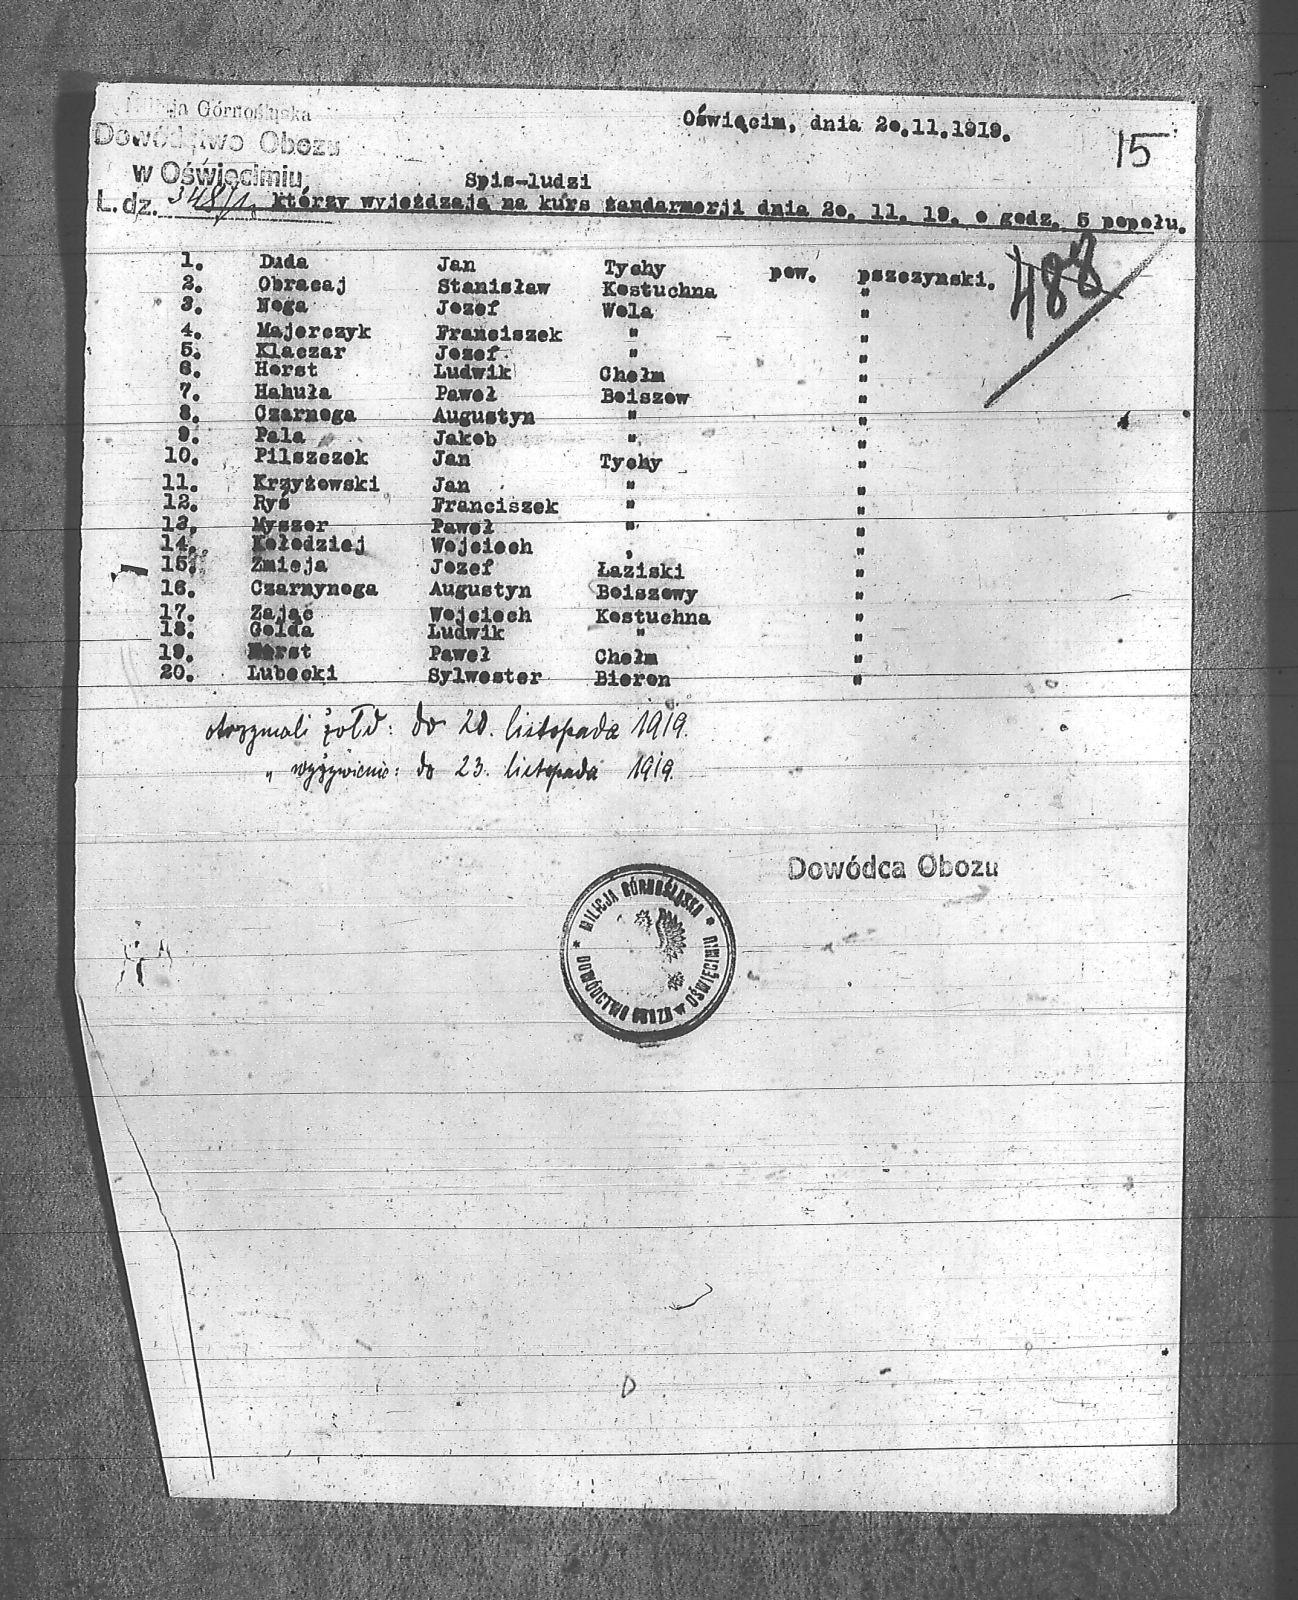 Milicja Górnośląska
Dowództwo Obozu
w Oświęcimiu,
L. dz. 348/1.
Oświęcim, dnia 20.11.1919.
15
Spis-ludzi
którzy wyjeżdzają na kurs żandarmerji dnia 20. 11. 19. o godz. 5 popołu.
488
1. Duda Jan Tychy pow. pszczynski.
2. Obracaj Stanisław Kostuchna "
3. Noga Jozef Wola "
4. Majerczyk Franciszek " "
5. Klaczar Jozef " "
6. Horst Ludwik Chełm "
7. Hahuła Paweł Boiszow "
8. Czarnoga Augustyn " "
9. Pala Jakob " "
10. Pilszczek Jan Tychy "
11. Krzyżowski Jan " "
12. Ryś Franciszek " "
13. Myszor Paweł " "
14. Kołodziej Wojciech , "
15. Żmieja Jozef Łaziski "
16. Czarnynoga Augustyn Boiszowy "
17. Zając Wojciech Kostuchna "
18. Golda Ludwik " "
19. Horst Paweł Chełm "
20. Lubecki Sylwester Bieron "
otrzymali żołd: do 20. listopada 1919.
" wyżywienie: do 23. listopada 1919.
Dowódca Obozu
* MILICJA GÓRNOŚLĄSKA * DOWÓDCTWO OBOZU w OŚWIĘCIMIU